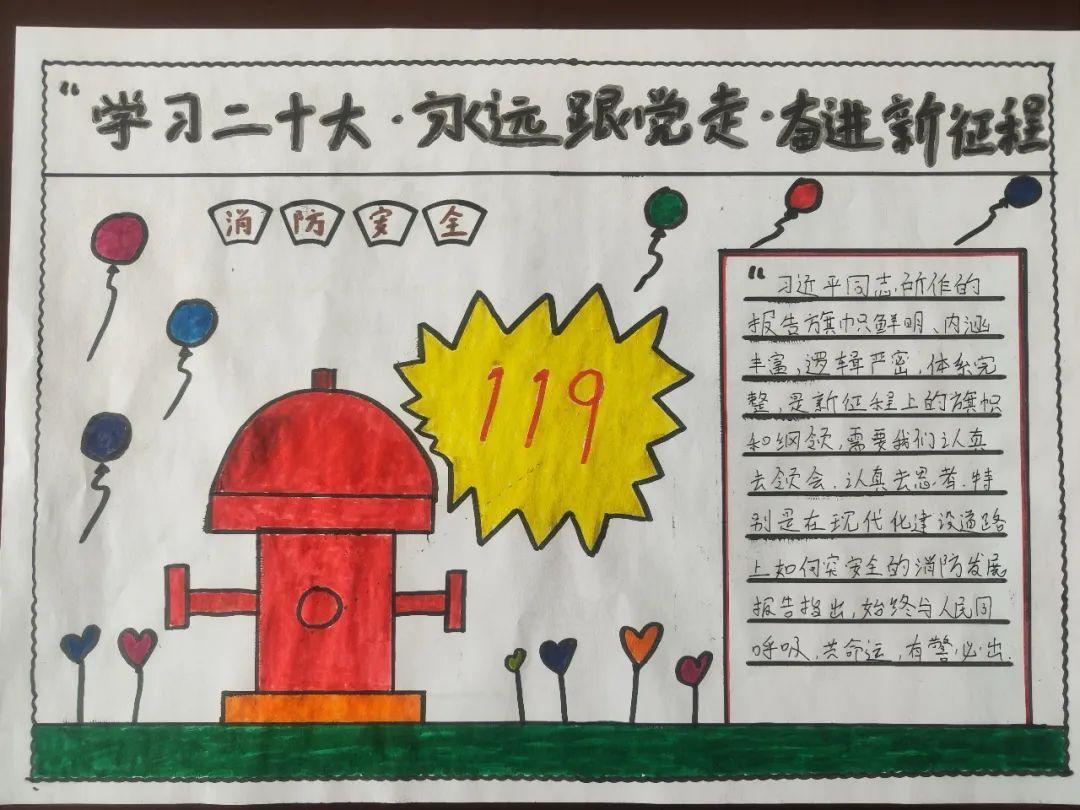 “学习二十大·永远跟党走·奋进新征程
消防安全
119
“习近平同志所作的
报告旗帜鲜明、内涵
丰富,逻辑严密,体系完
整,是新征程上的旗帜
和纲领,需要我们认真
去领会,认真去思考,特
别是在现代化建设道路
上如何突安全的消防发展
报告指出,始终与人民同
呼吸,共命运,有警必出.